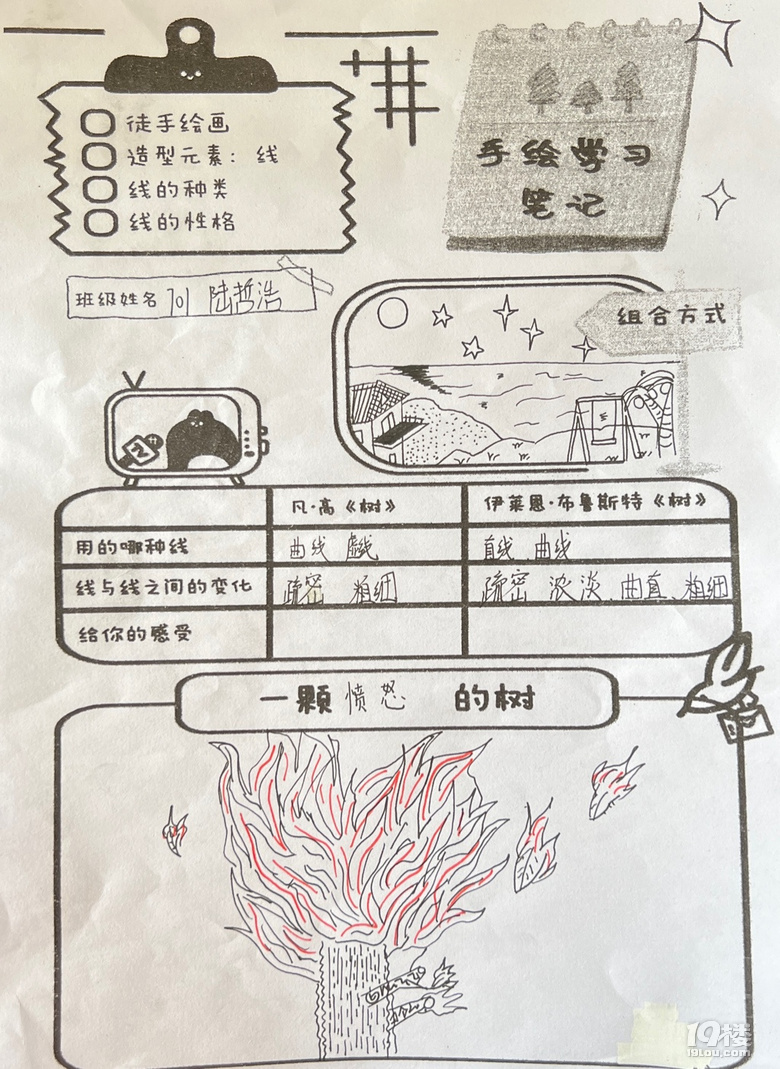 徒手绘画
造型元素：线
线的种类
线的性格
手绘学习
笔记
班级姓名 701 陆哲浩
组合方式
凡·高《树》 伊莱恩·布鲁斯特《树》
用的哪种线 曲线 虚线 直线、曲线
线与线之间的变化 疏密 粗细 疏密 浓淡、曲直、粗细
给你的感受
一颗愤怒的树
19楼
19lou.com